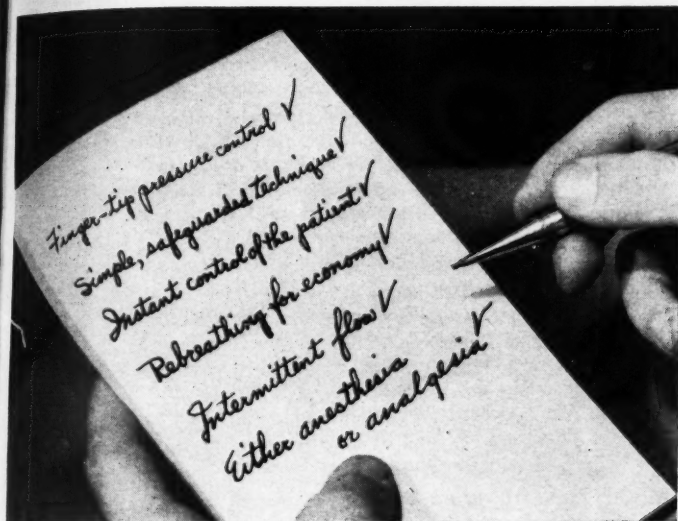 Finger-tip pressure control ✓
Simple, safeguarded technique ✓
Instant control of the patient ✓
Rebreathing for economy ✓
Intermittent flow ✓
Either anesthesia
or analgesia ✓